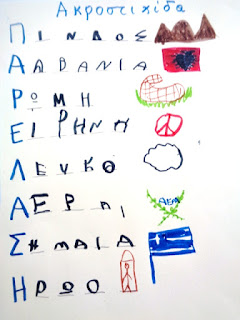 Ακροστιχίδα
ΠΙΝΔΟΣ
ΑΛΒΑΝΙΑ
ΡΩΜΗ
ΕΙΡΗΝΗ
ΛΕΥΚΟ
ΑΕΡΑ!
ΣΗΜΑΙΑ
ΗΡΩΟ